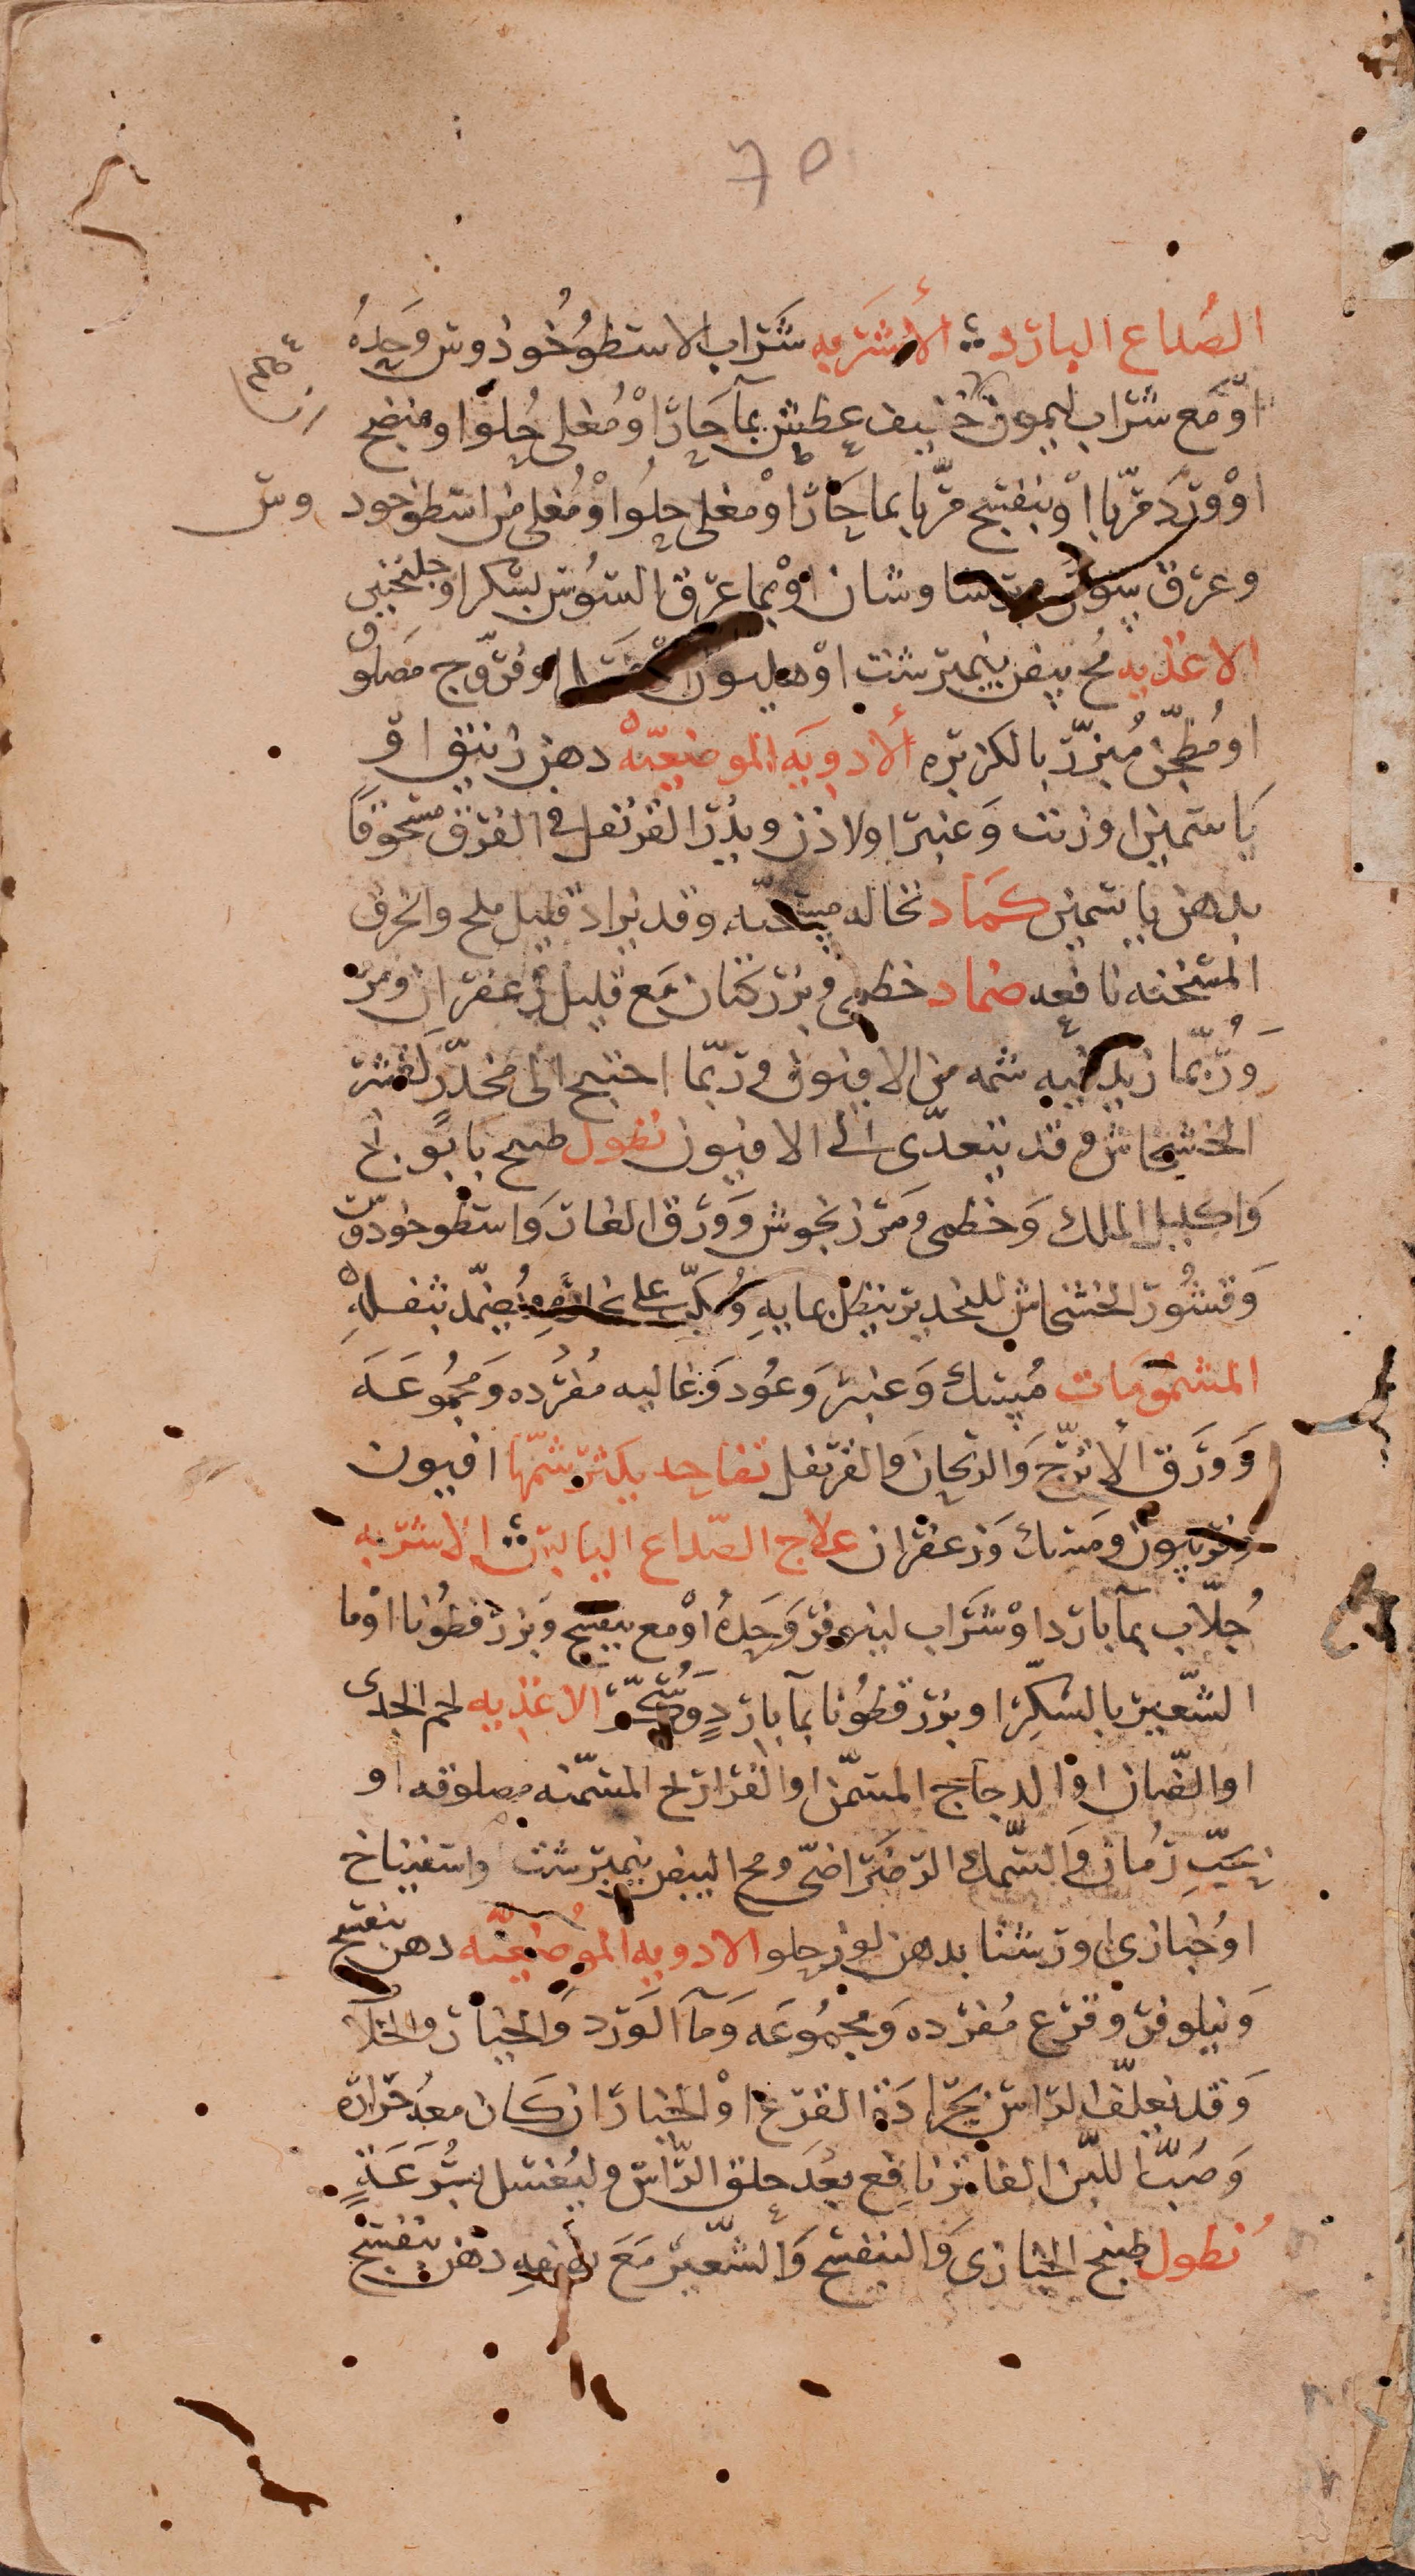 ٦٥
الصُداع البارد الأشربه شَراب الاسطوُخُودوس وَحدهُ
اوْ مَع شراب ليمون خفيف عطش بمآ حَار اوْ مُغلى حُلوا ومنضج
اوْ وَرد مرّبا اوْ بنفسج مرّبا بما حَار اوْ مغلى حلوا اوْ مُغلى من اسطوخود وس
وعرق سوس وبرساوشان اوْ بما عرق السُوس بسكر او جلنجبين
الاغذيه مُح بيض نيمبرشت اوْ هليون او فرّوج مصلوق
او مُطجّن مُبزّر بالكزبره ألادويَه الموضعيّه دهن زنبق او
يَاسمين او زيت وَعنبر او لاذن ويذُر القرنفل في الفرق مسحوقا
بدهن ياسمين كماد نخاله مسخنّه وقد يزاد قليل ملح والخرق
المسخنه نافعه ضماد خطمى وبزر كتان مَع قليل زعفران ومرّ
وَرُبّما زيد فيه شمه من الافيون وربّما احتيج الى مخدّر كقشر
الخشخاش وقد يتعدّى الى الافيون نطول طبيخ بابونج
وَاكليل الملك وَخطمى ومَرزنجوش وَوَرق الغار وَاسطوخودوس
وَقشُور الخشخاش للتخدير ينطل بمايهِ وُيكبّ على بخارهِ ويُضمّد بثفلهِ
المشمُومَات مُسك وَعنبر وَعُود وَغاليه مُفرده وَمجمُوعَه
وَوَرَق الأترجّ وَالريحان وَالقرنفل تفاحه يكثر شمّها افيون
وفربيون ومسك وَزعفران علاج الصّداع اليابس الاشربه
جُلّاب بمآ بارد اوْ شَراب لينوفر وَحدهُ اوْ مع بنفسج وَبزر قطوُنا اوْ ما
الشّعير بالسّكر او بزر قطوُنا بمآ باردٍ وَسُكّر الاغذيه لحم الجدى
او الضّان اوْ الدجاج المسمّن او الفراريج المسمّنه مصلوقه او
بحَبّ رُمان وَالسّمك الرضراضىّ ومح البيض نيمبرشت واسفيناخ
اوْ خبازى او رشتا بدهن لوز حلو الادويه الموُضعيّه دهن بنفسج
وَنيلوفر وقرع مُفرده وَمجمُوعَه وَمآ الوَرد وَالخيار والخلّا
وَقد نعلّف الرّاس بجُرادَة القرع اوْ الخيار ان كان معهُ حَراره
وَصَبُّ اللّبن الفاتر نافع بعدَ حلق الرّاس وليُغسَل بسُرعَةٍ
نُطول طبيخ الخبازى وَالبنفسج وَالشّعير مَعَ دهن بنفسج